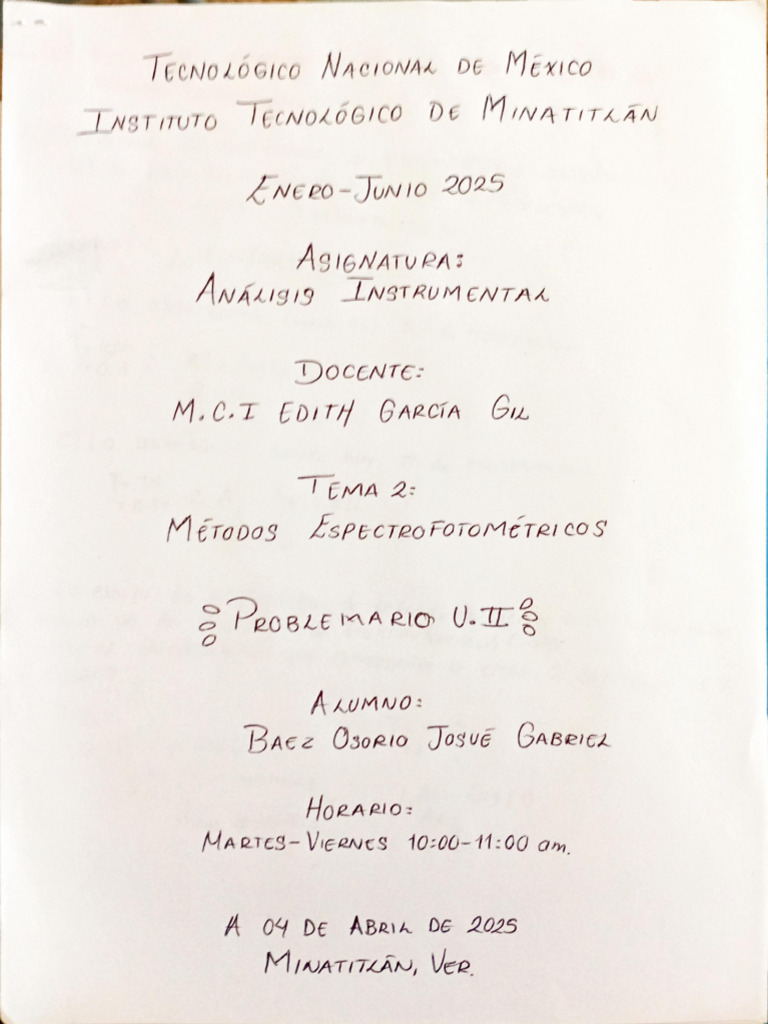 TECNOLÓGICO NACIONAL DE MÉXICO
INSTITUTO TECNOLÓGICO DE MINATITLÁN
ENERO-JUNIO 2025
ASIGNATURA:
ANÁLISIS INSTRUMENTAL
DOCENTE:
M.C.I EDITH GARCÍA GIL
TEMA 2:
MÉTODOS ESPECTROFOTOMÉTRICOS
PROBLEMARIO U.II
ALUMNO:
BAEZ OSORIO JOSUÉ GABRIEL
HORARIO:
MARTES-VIERNES 10:00-11:00 am.
A 04 DE ABRIL DE 2025
MINATITLÁN, VER.